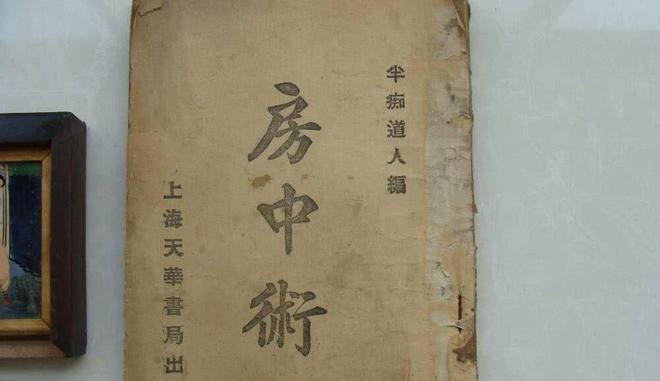 半痴道人編
房中術
上海天華書局出